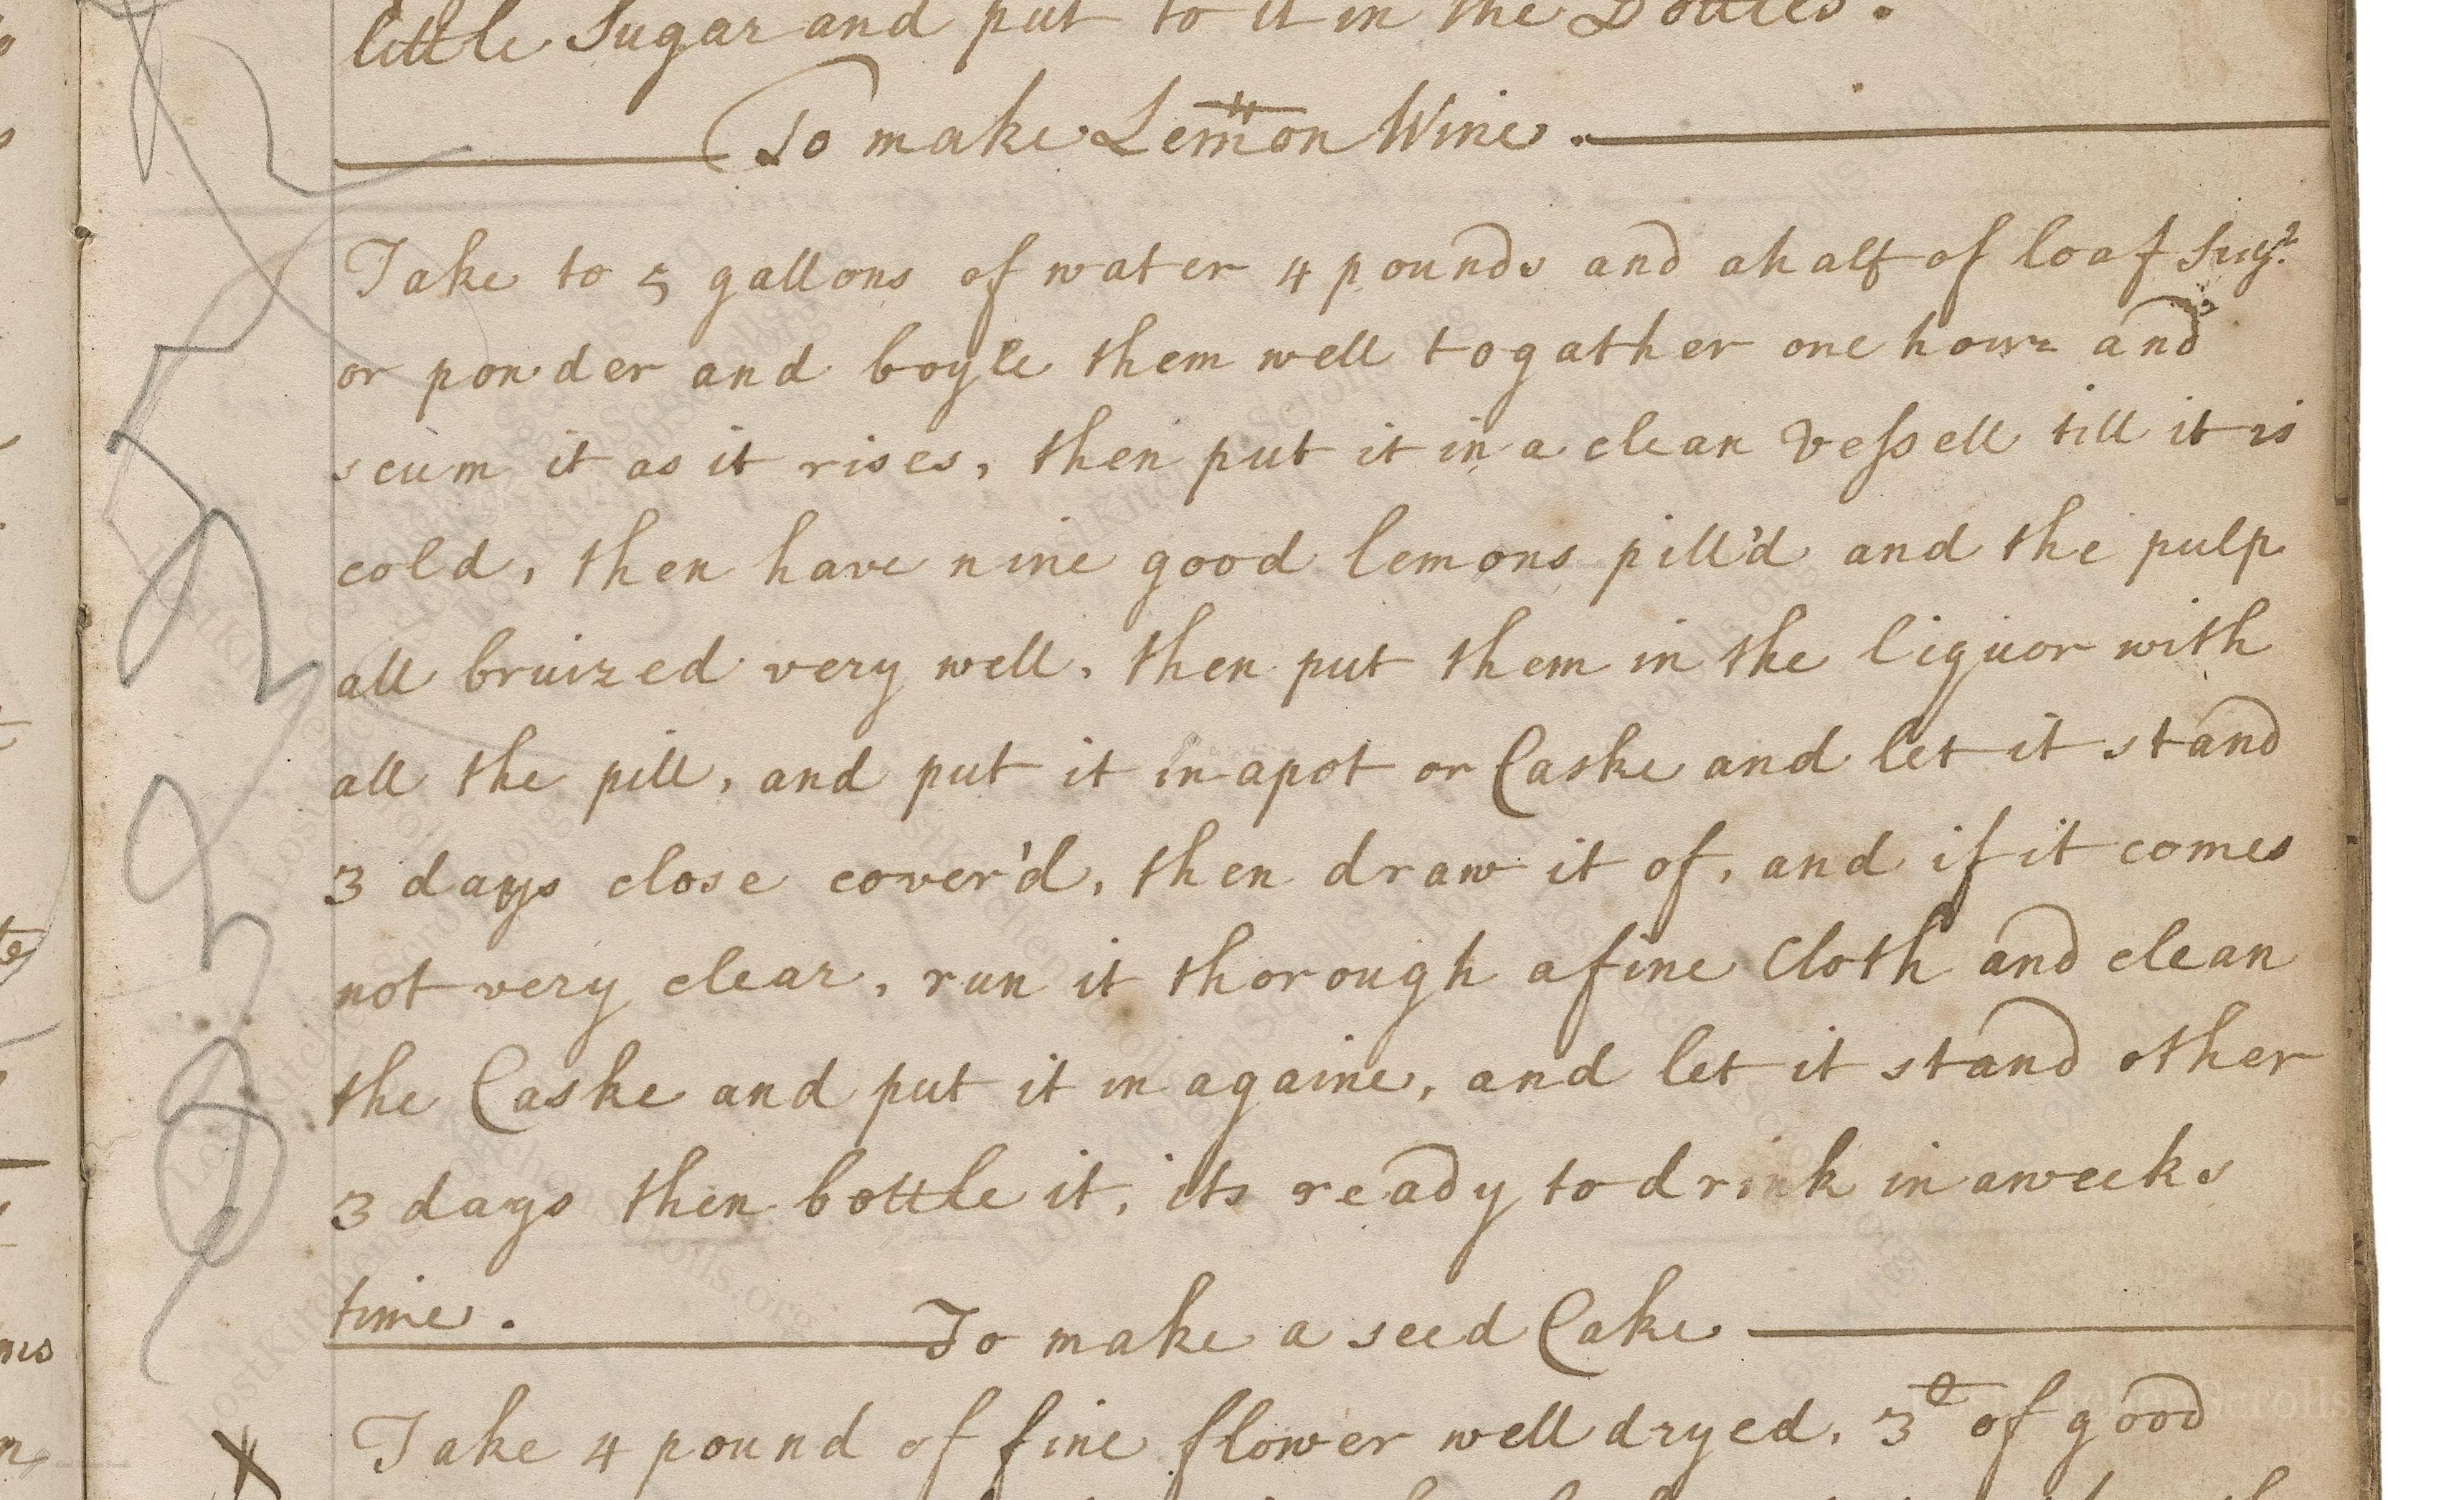 little Sugar and put to it in the Bottles.
To make Lemon Wine.
Take to 5 gallons of water 4 pounds and a half of loaf Sugr.
or powder and boyle them well togather one hour and
scum it as it rises, then put it in a clean Vessell till it is
cold, then have nine good lemons pill'd and the pulp
all bruized very well, then put them in the liquor with
all the pill, and put it in a pot or Caske and let it stand
3 days close cover'd, then draw it of, and if it comes
not very clear, run it thorough a fine Cloth and clean
the Caske and put it in againe, and let it stand other
3 days then bottle it, its ready to drink in a weeks
time.
To make a seed Cake
Take 4 pound of fine flower well dryed, 3 of good